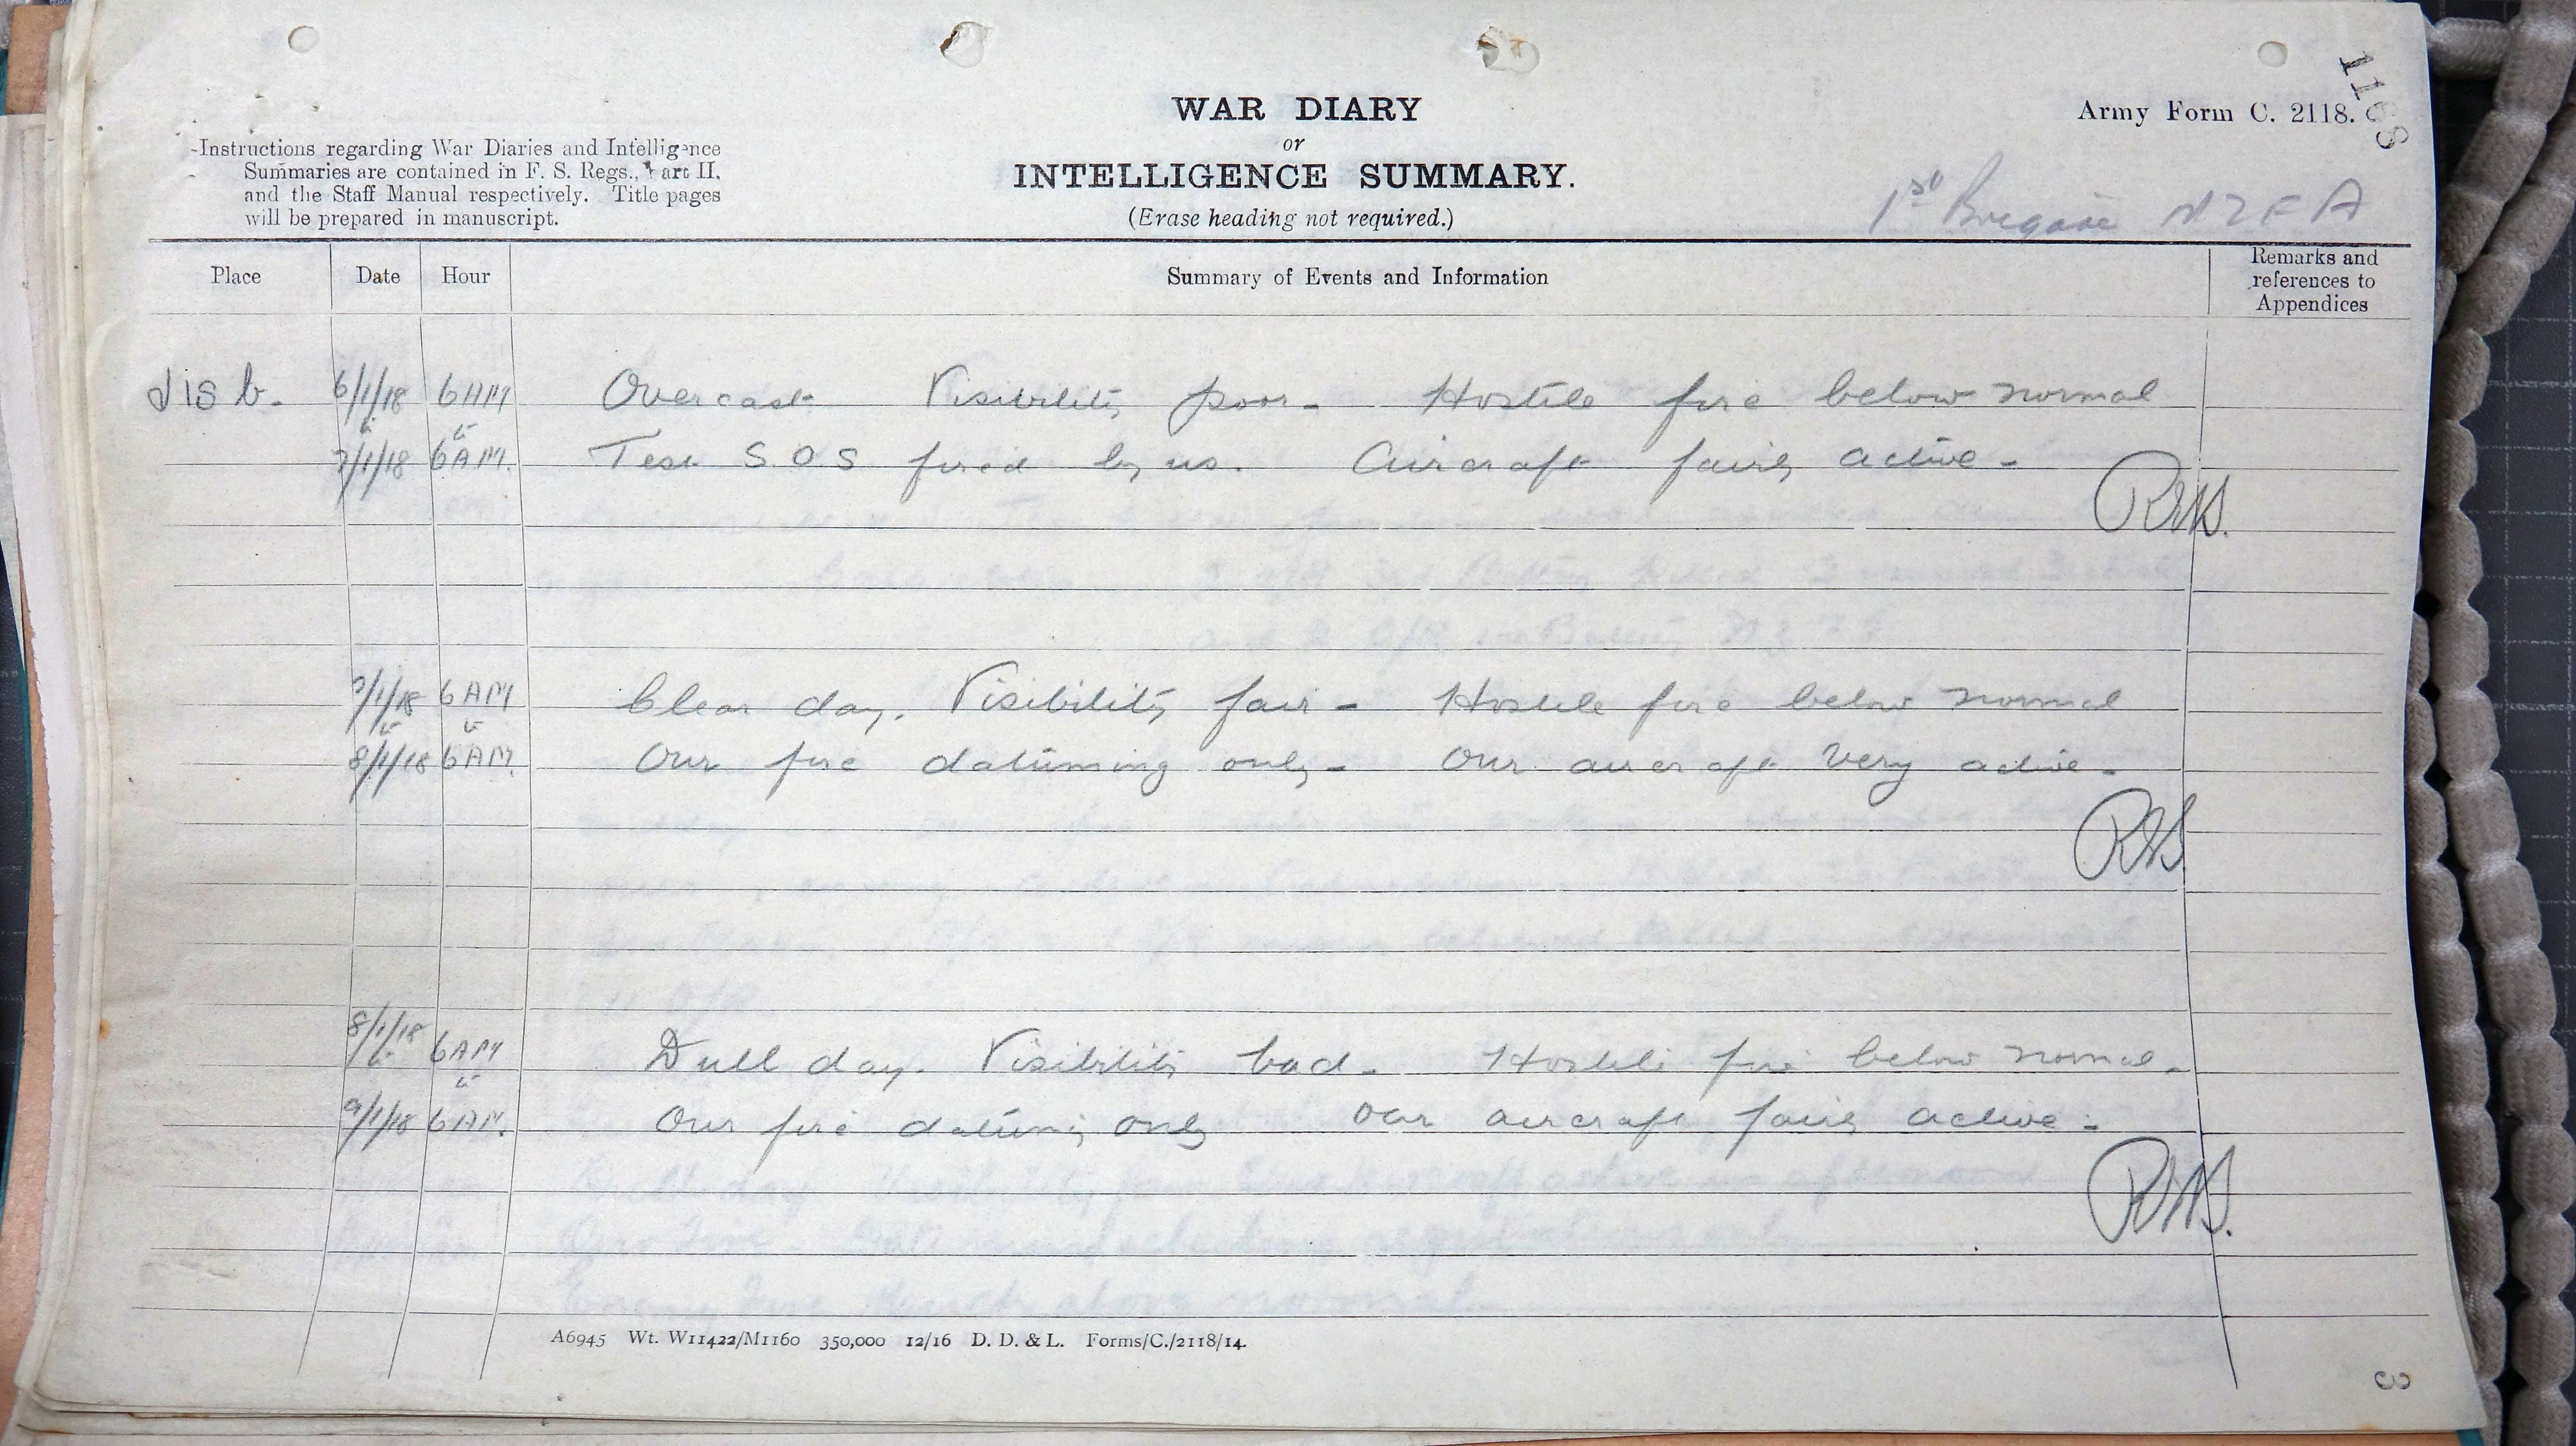 WAR DIARY
or
INTELLIGENCE SUMMARY.
(Erase heading not required.)
Army Form C. 2118.
Instructions regarding War Diaries and Intelligence
Summaries are contained in F. S. Regs., Part II.
and the Staff Manual respectively. Title pages
will be prepared in manuscript.
1st Brigade NZFA
Place Date Hour Summary of Events and Information Remarks and references to Appendices
6/1/18 6AM Overcast Visibility poor - Hostile fire below normal
to to
7/1/18 6AM. Test S.O.S fired by us. Aircraft fairly active -
7/1/18 6AM Clear day. Visibility fair - Hostile fire below normal
to to
8/1/18 6AM. Our fire datuming only - Our aircraft very active -
8/1/18 6AM Dull day. Visibility bad - Hostile fire below normal -
to to
9/1/18 6AM. Our fire datuming only Our aircraft fairly active -
A6945 Wt. W11422/M1160 350,000 12/16 D. D. & L. Forms/C./2118/14.
3